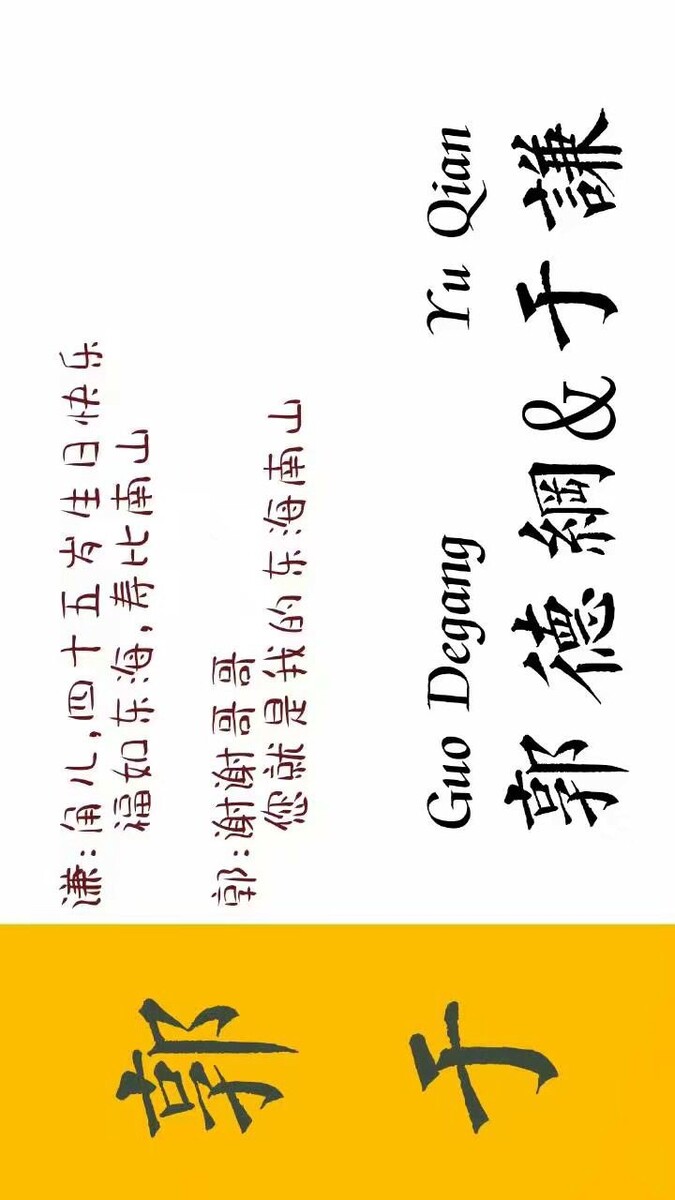 谦:角儿,四十五岁生日快乐
福如东海,寿比南山
郭:谢谢哥哥
您就是我的东海南山
Guo Degang Yu Qian
郭德綱&于謙
郭
于